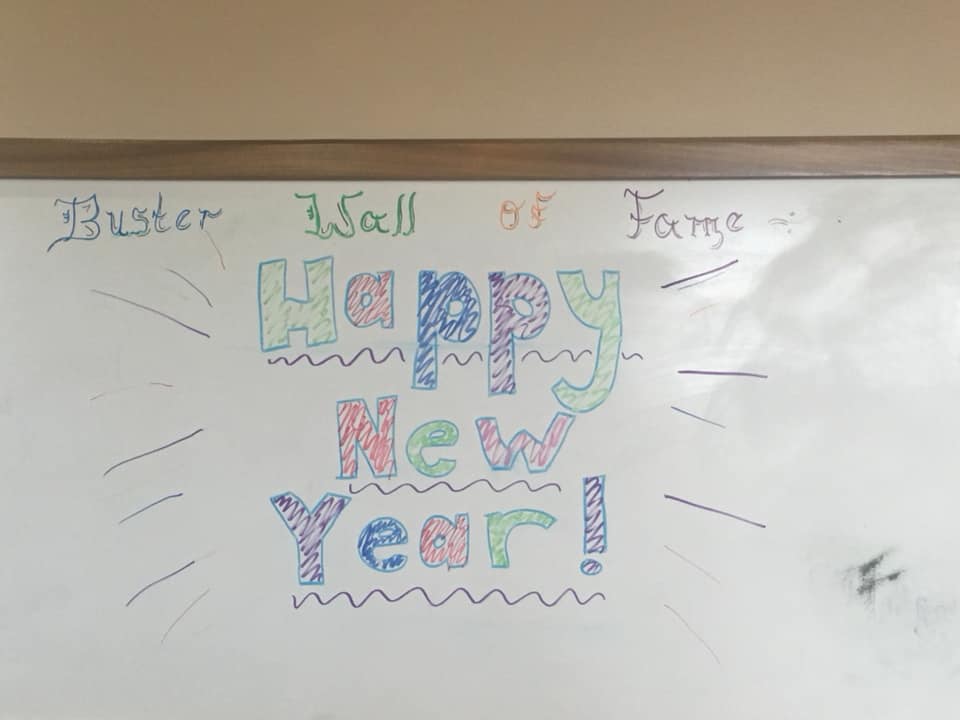 Buster Wall of Fame :
Happy
New
Year!